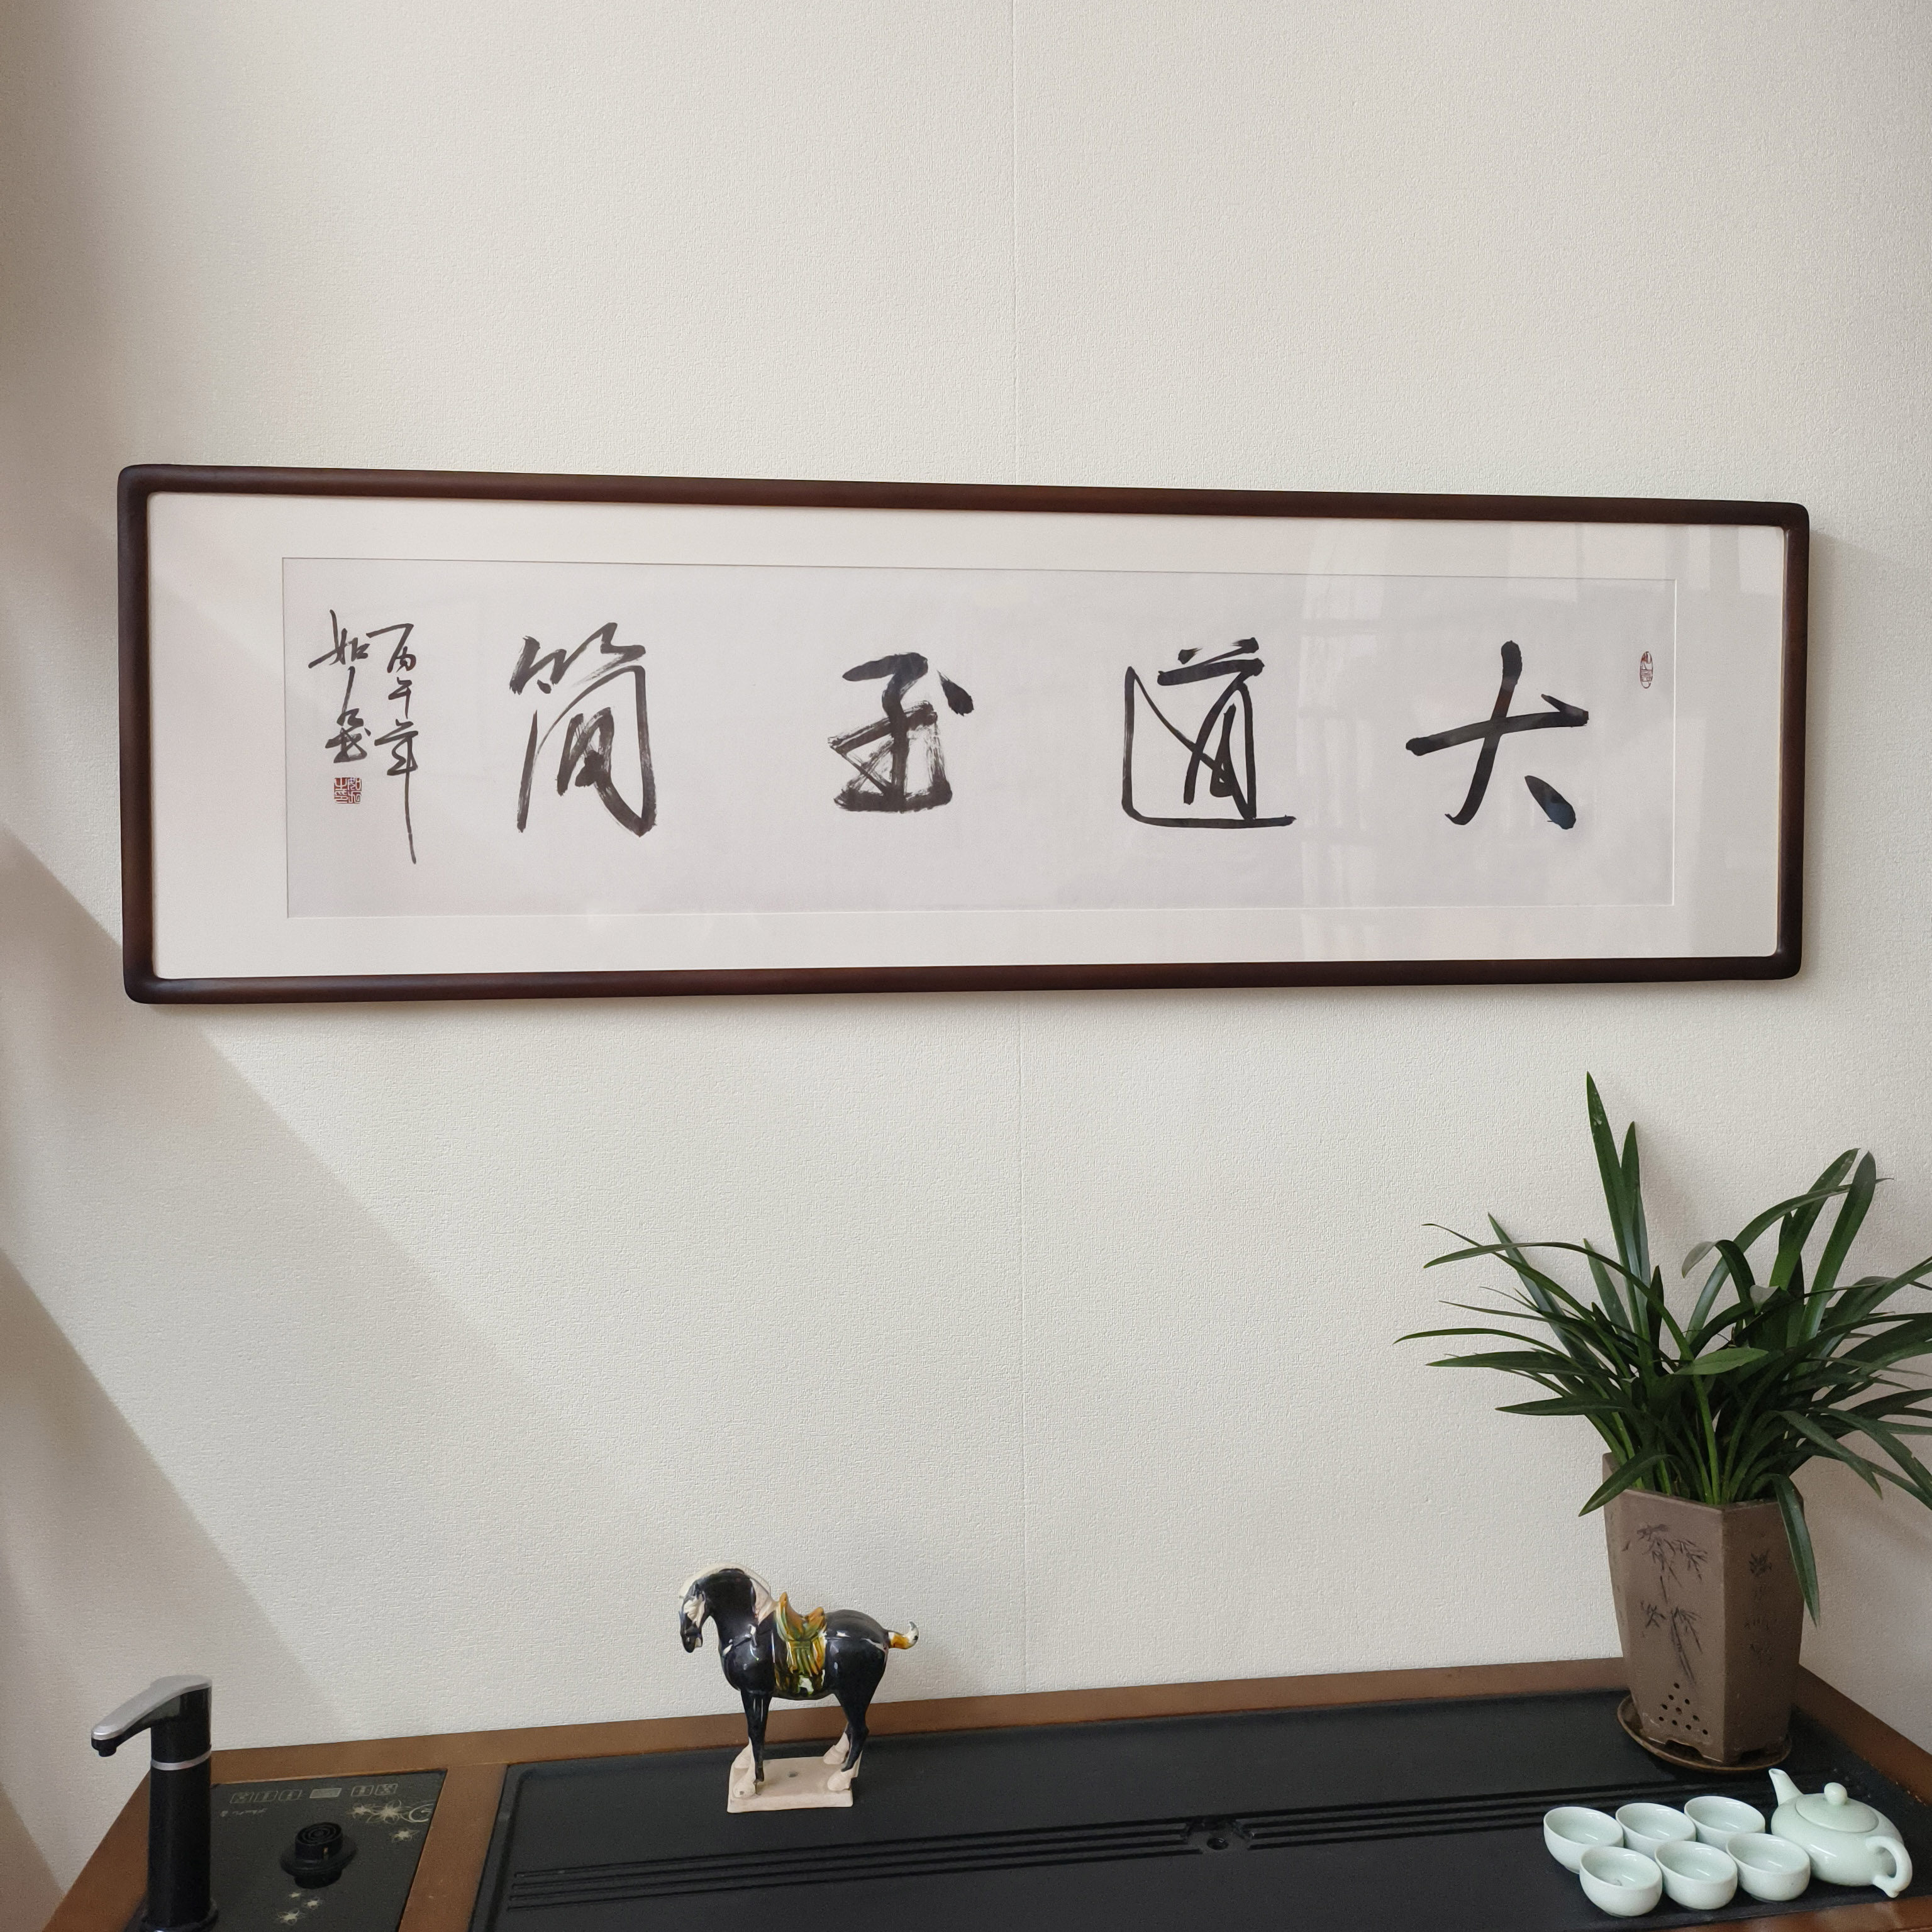 大道至简
丙午年
如